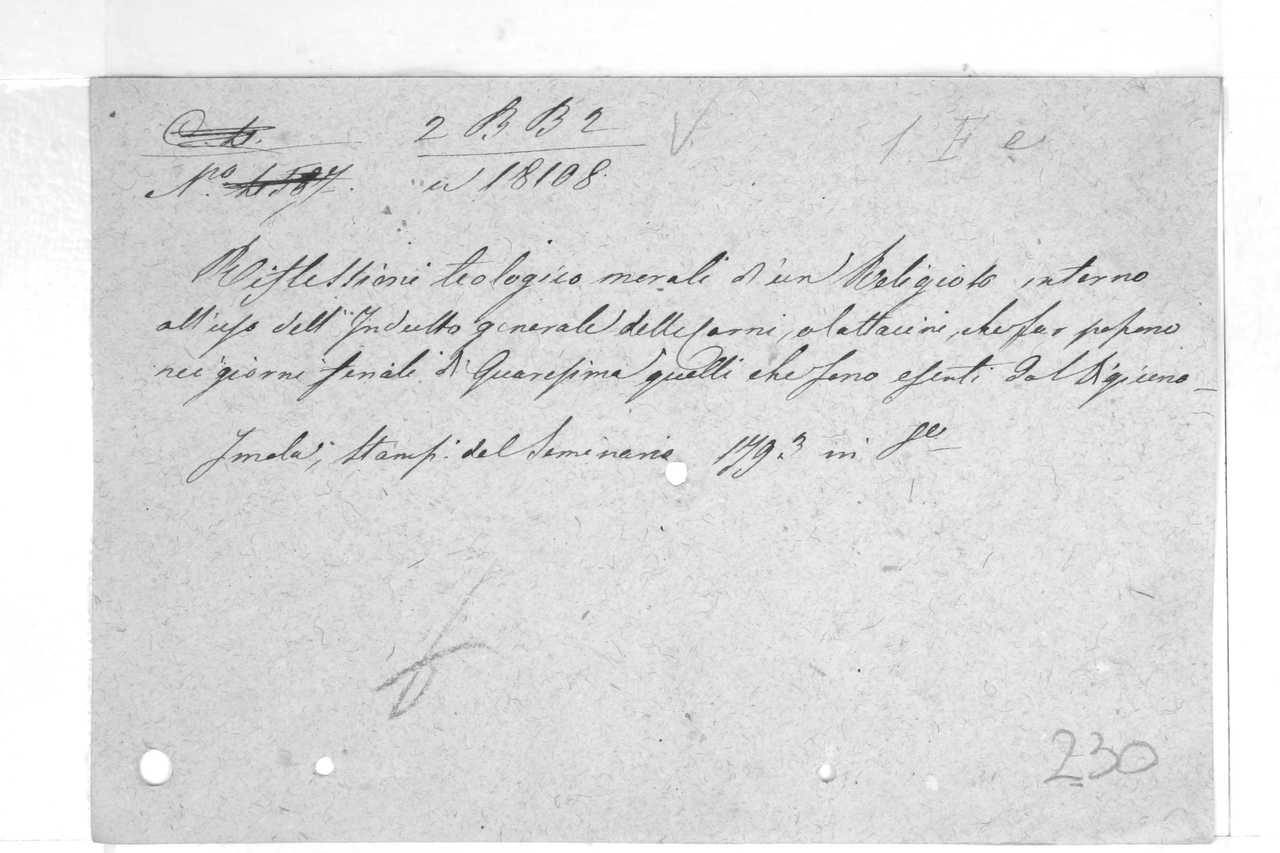 2 B B 2 V. 1. F e
N.ro 18108
Riflessioni teologico morali d'un Religioso intorno
all'uso dell'Indulto generale delle carni, o latticini, che far possono
nei giorni feriali di Quaresima quelli che sono esenti dal Digiuno
Imola, Stamp. del Seminario 1793 in 8º
230